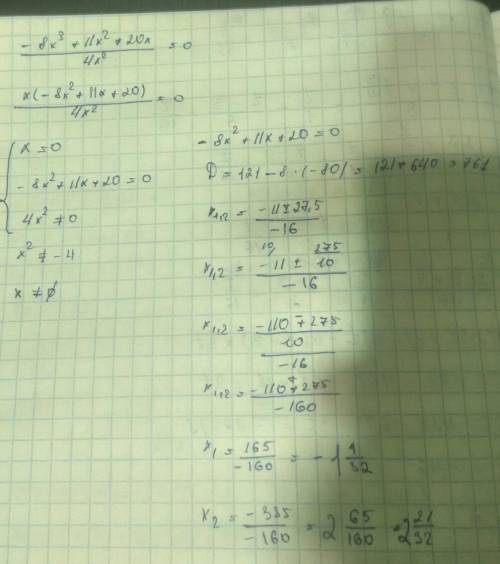 (-8x³ + 11x² + 20x) / 4x² = 0
x(-8x² + 11x + 20) / 4x² = 0
{ x = 0
-8x² + 11x + 20 = 0
4x² ≠ 0
x² ≠ -4
x ≠ ∅
-8x² + 11x + 20 = 0
D = 121 - 8 · (-80) = 121 + 640 = 761
x₁,₂ = (-11 ± 27,5) / -16
x₁,₂ = (-11 ± 275/10) / -16
x₁,₂ = ((-110 ∓ 275) / 10) / -16
x₁,₂ = (-110 ∓ 275) / -160
x₁ = 165 / -160 = -1 1/32
x₂ = -385 / -160 = 2 65/160 = 2 21/32